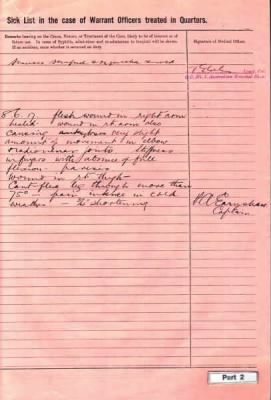 Sick List in the case of Warrant Officers treated in Quarters.
Remarks bearing on the Cause, Nature, or Treatment of the Case, likely to be of interest or of
future use. In cases of Syphilis, admission and re-admissions to hospital will be shown.
If an accident, state whether or not on duty
Signature of Medical Officer.
8.6.17 flesh wound in right arm
healed wound in rt arm also
causing very slight
amount of movement in elbow
& radio-ulnar joints Stiffness
in fingers with absence of full
flexion - paresis
Wound in rt thigh -
Cant flex leg through more than
75° - pain intense in cold
weather - ½" shortening
Captain
Part 2